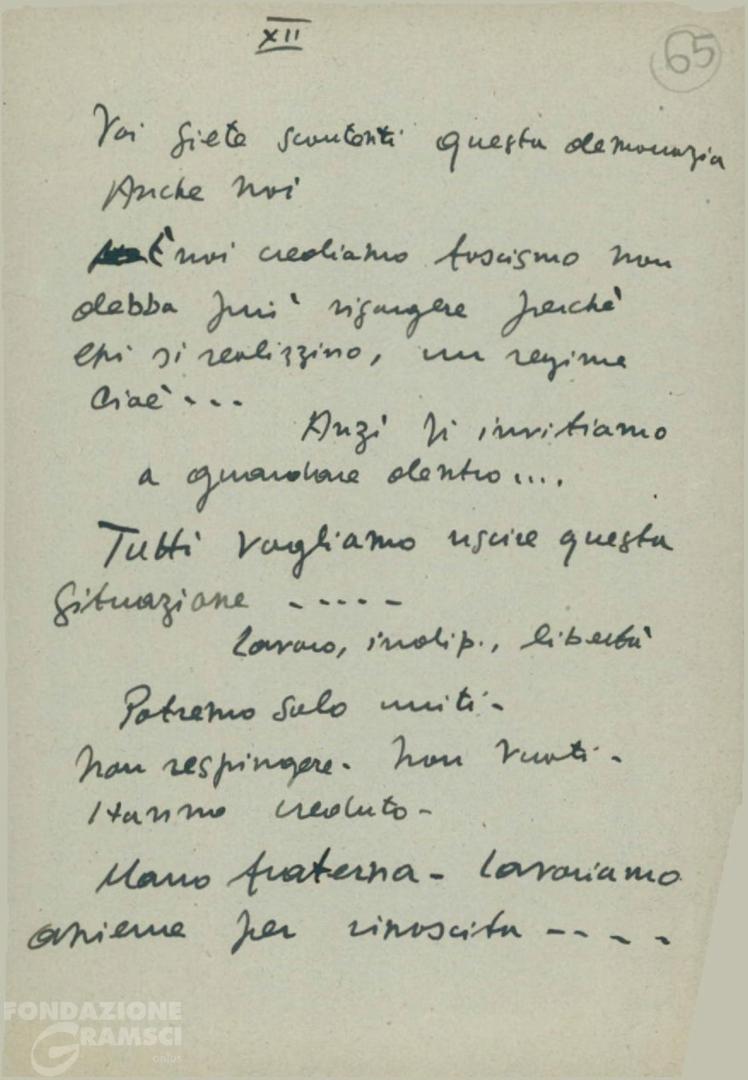 XII
65
Voi siete scontenti questa democrazia
Anche noi
E noi crediamo fascismo non
debba più risorgere perchè
essi si realizzino, un regime
Cioè ...
Anzi vi invitiamo
a guardare dentro ....
Tutti vogliamo uscire questa
situazione -----
Lavoro, indip., libertà
Potremo solo uniti -
Non respingere - Non vuoti -
Hanno creduto -
Mano fraterna - Lavoriamo
assieme per rinascita ----
FONDAZIONE
GRAMSCI
onlus